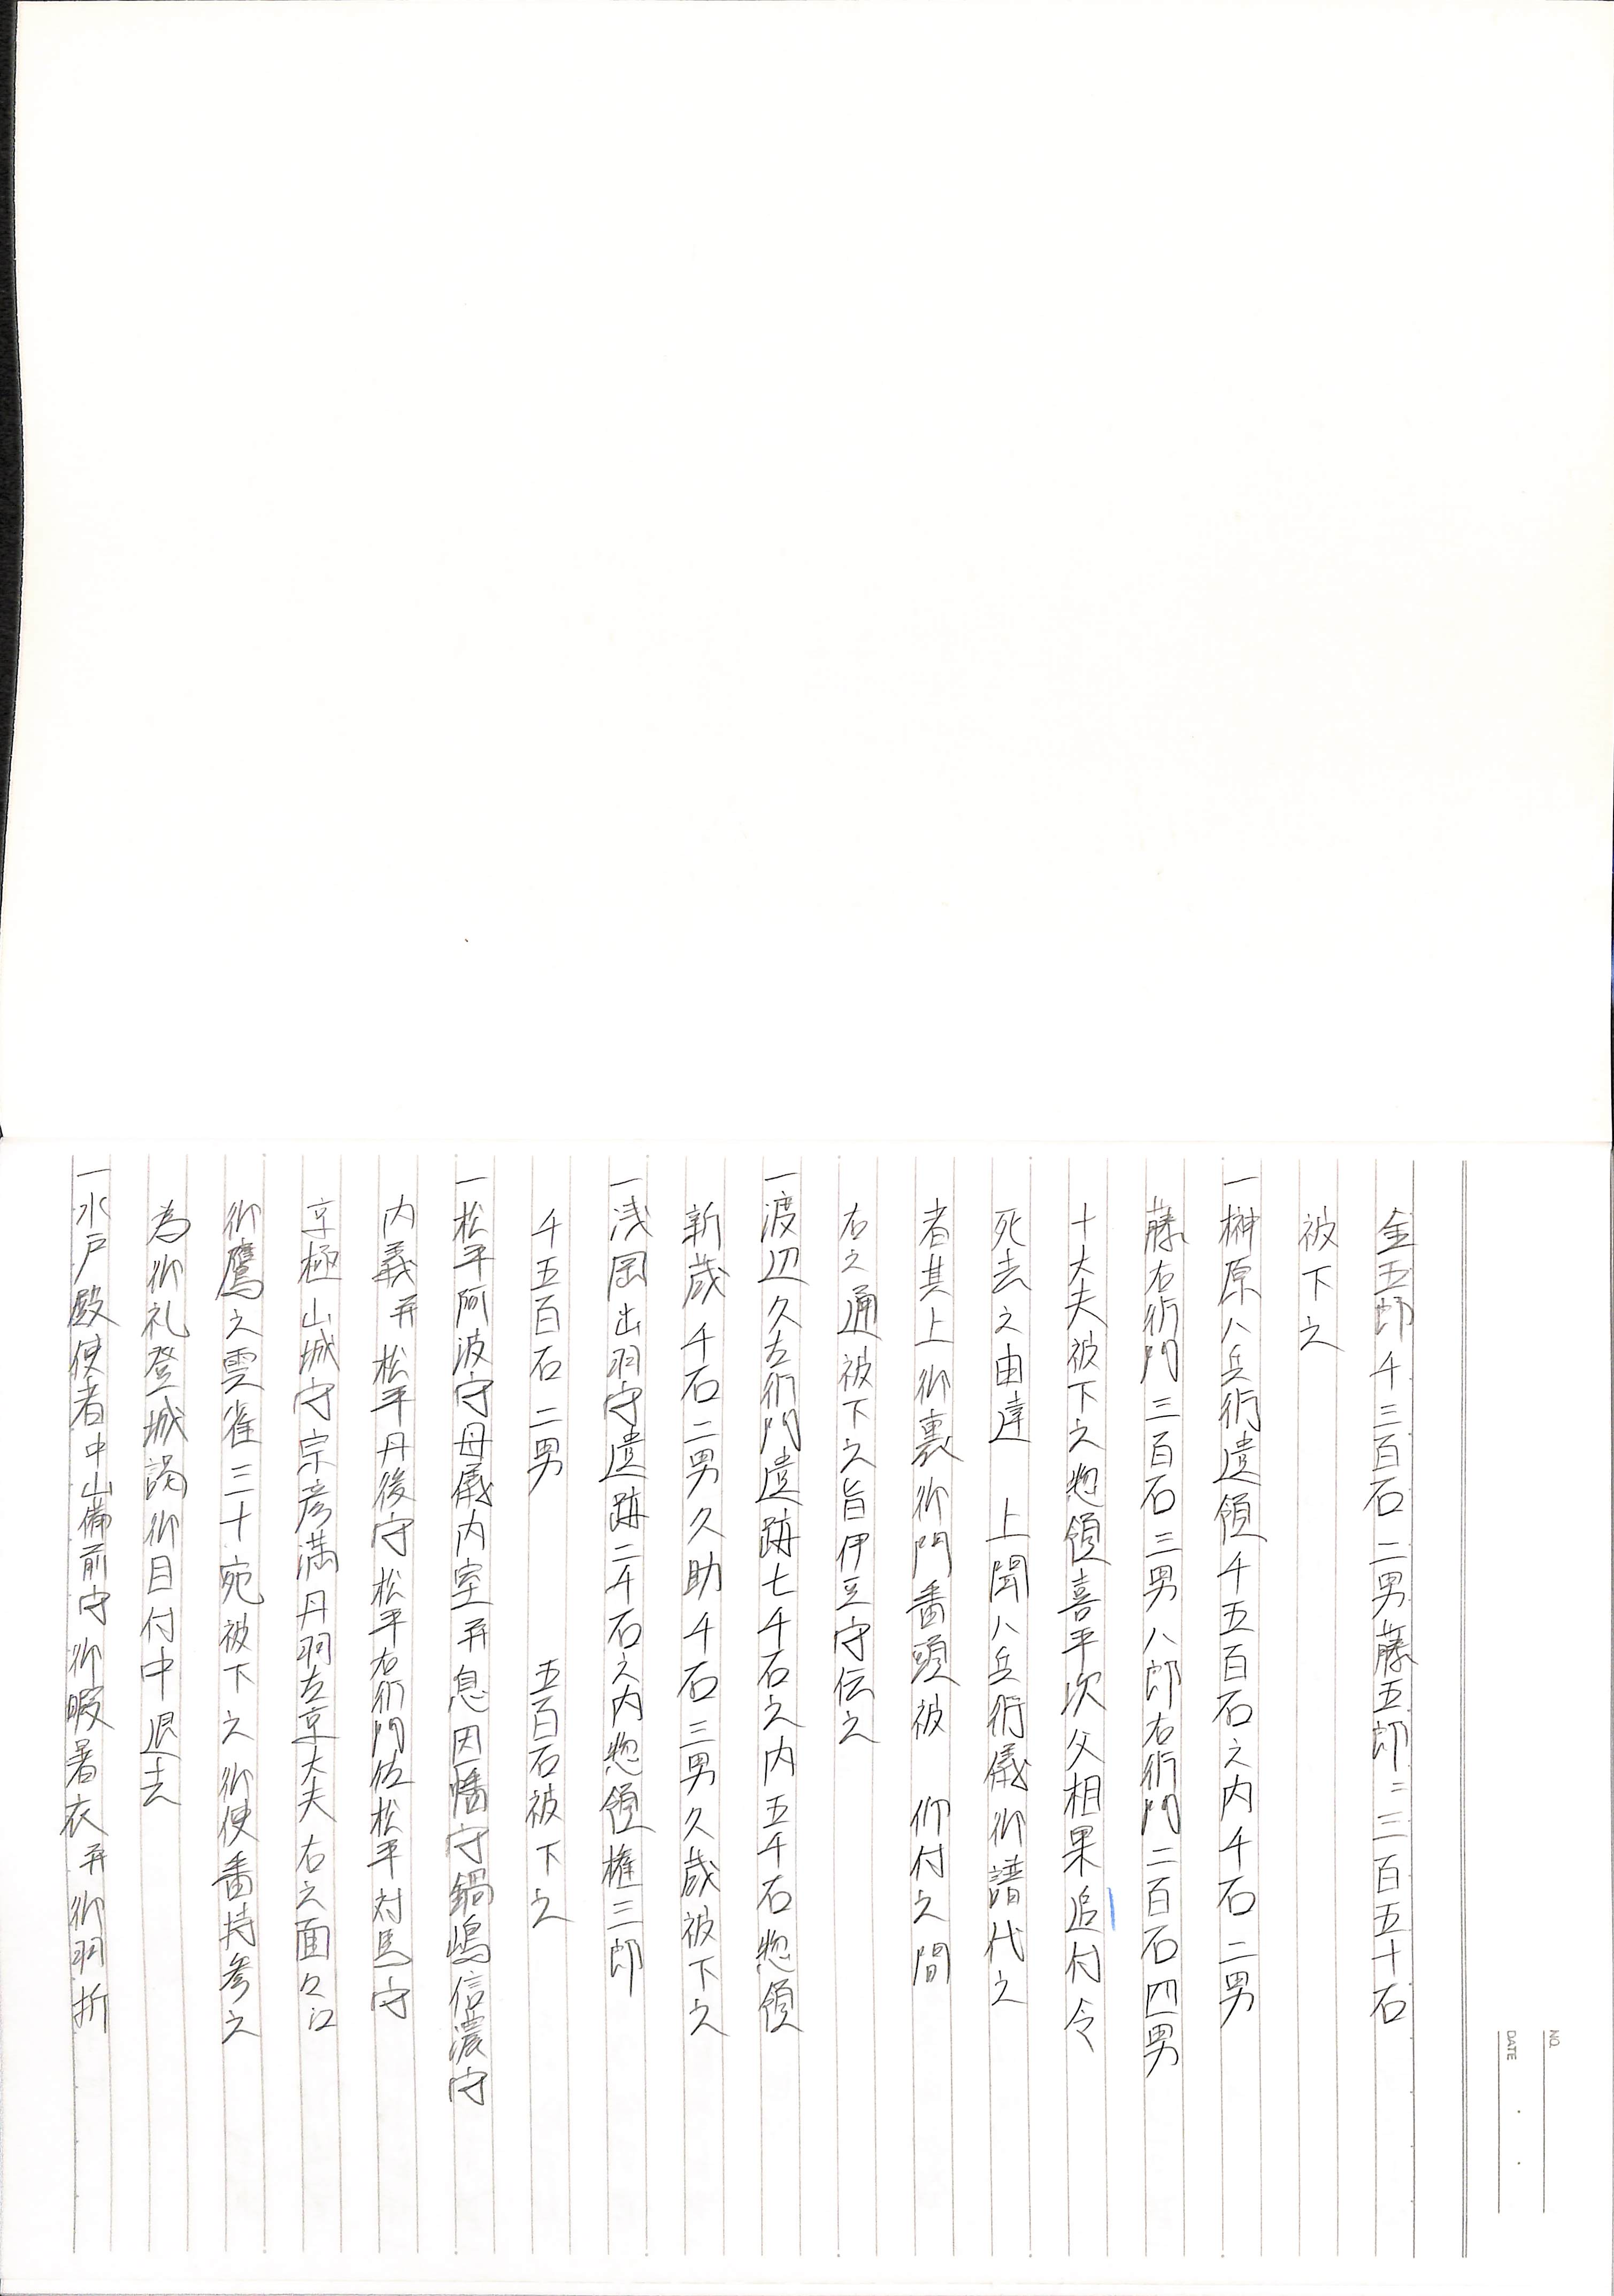 NO.
DATE
金五郎千三百石二男藤五郎ニ三百五十石
被下之
一榊原八兵衛遺領千五百石之内千石二男
藤右衛門三百石三男八郎右衛門二百石四男
十大夫被下之惣領喜平次父相果追付令
死去之由達　上聞八兵衛儀御譜代之
者其上御裏御門番頭被　仰付之間
右之通被下之旨伊豆守伝之
一渡辺久左衛門遺跡七千石之内五千石惣領
新蔵千石二男久助千石三男久蔵被下之
一浅岡出羽守遺跡二千石之内惣領権三郎
千五百石二男　　　五百石被下之
一松平阿波守母儀内室并息因幡守鍋嶋信濃守
内義并松平丹後守松平右衛門佐松平対馬守
京極山城守宗彦満丹羽左京大夫右之面々江
御鷹之雲雀三十宛被下之御使番持参之
為御礼登城謁御目付中退去
一水戸殿使者中山備前守御暇暑衣并御羽折